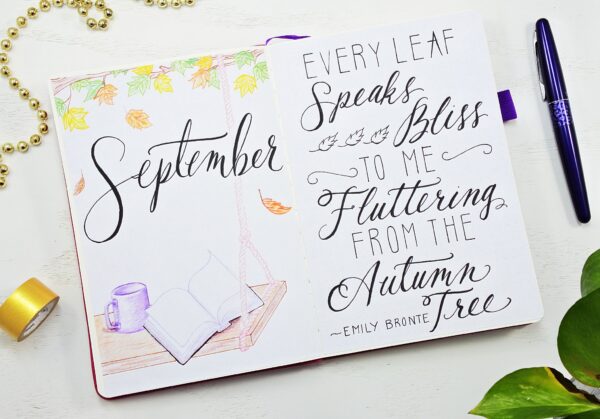 September
EVERY LEAF
Speaks
Bliss
TO ME
Fluttering
FROM THE
Autumn
Tree
~EMILY BRONTE